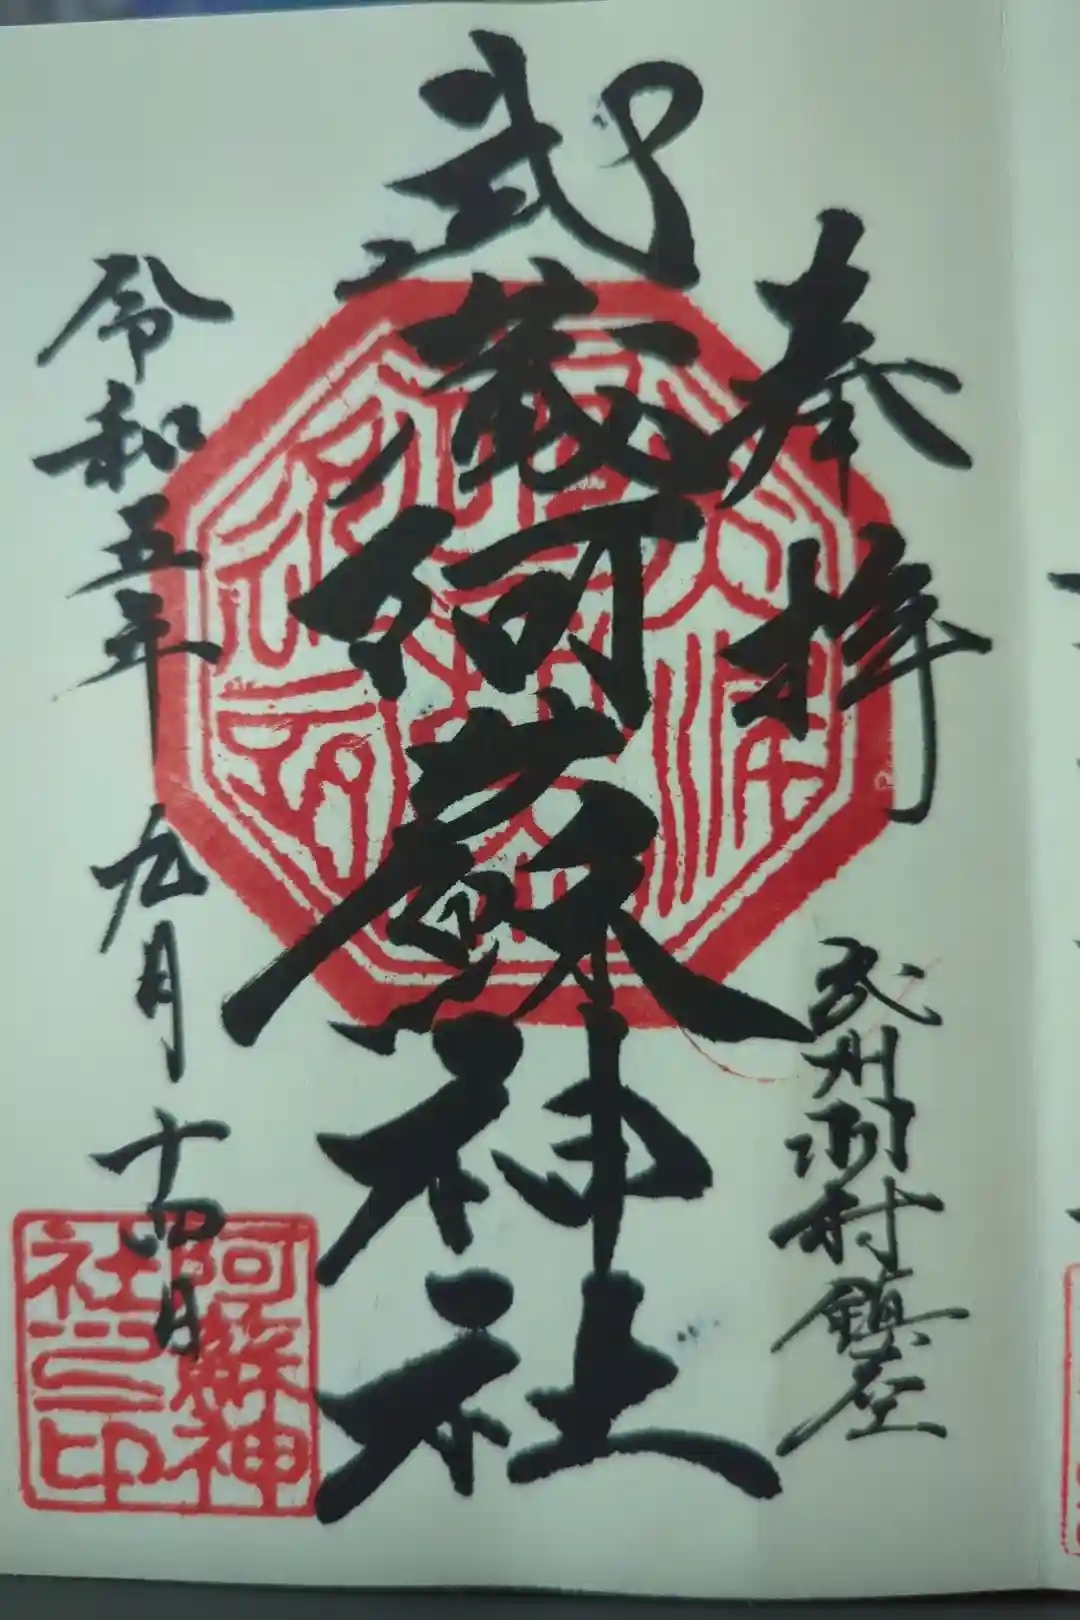 奉拝
武州羽村鎮座
武蔵阿蘇神社
令和五年九月十四日
阿蘇神社之印